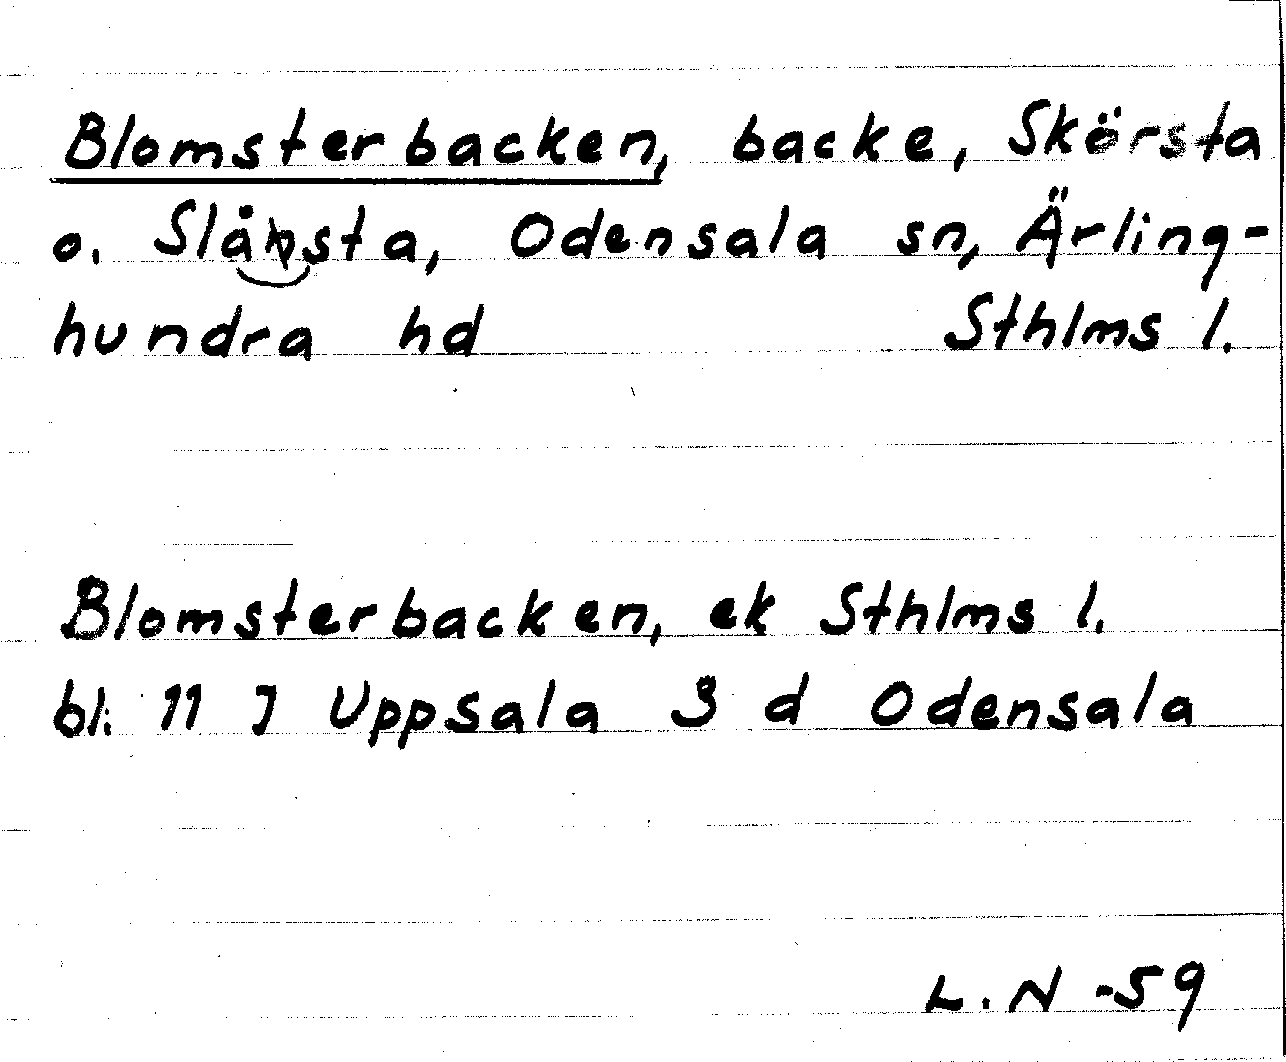 Blomsterbacken, backe, Skörsta
o. Slåsta, Odensala sn, Ärling-
hundra hd Sthlms l.
Blomsterbacken, ek Sthlms l.
bl. 11 J Uppsala 3 d Odensala
L.N -59